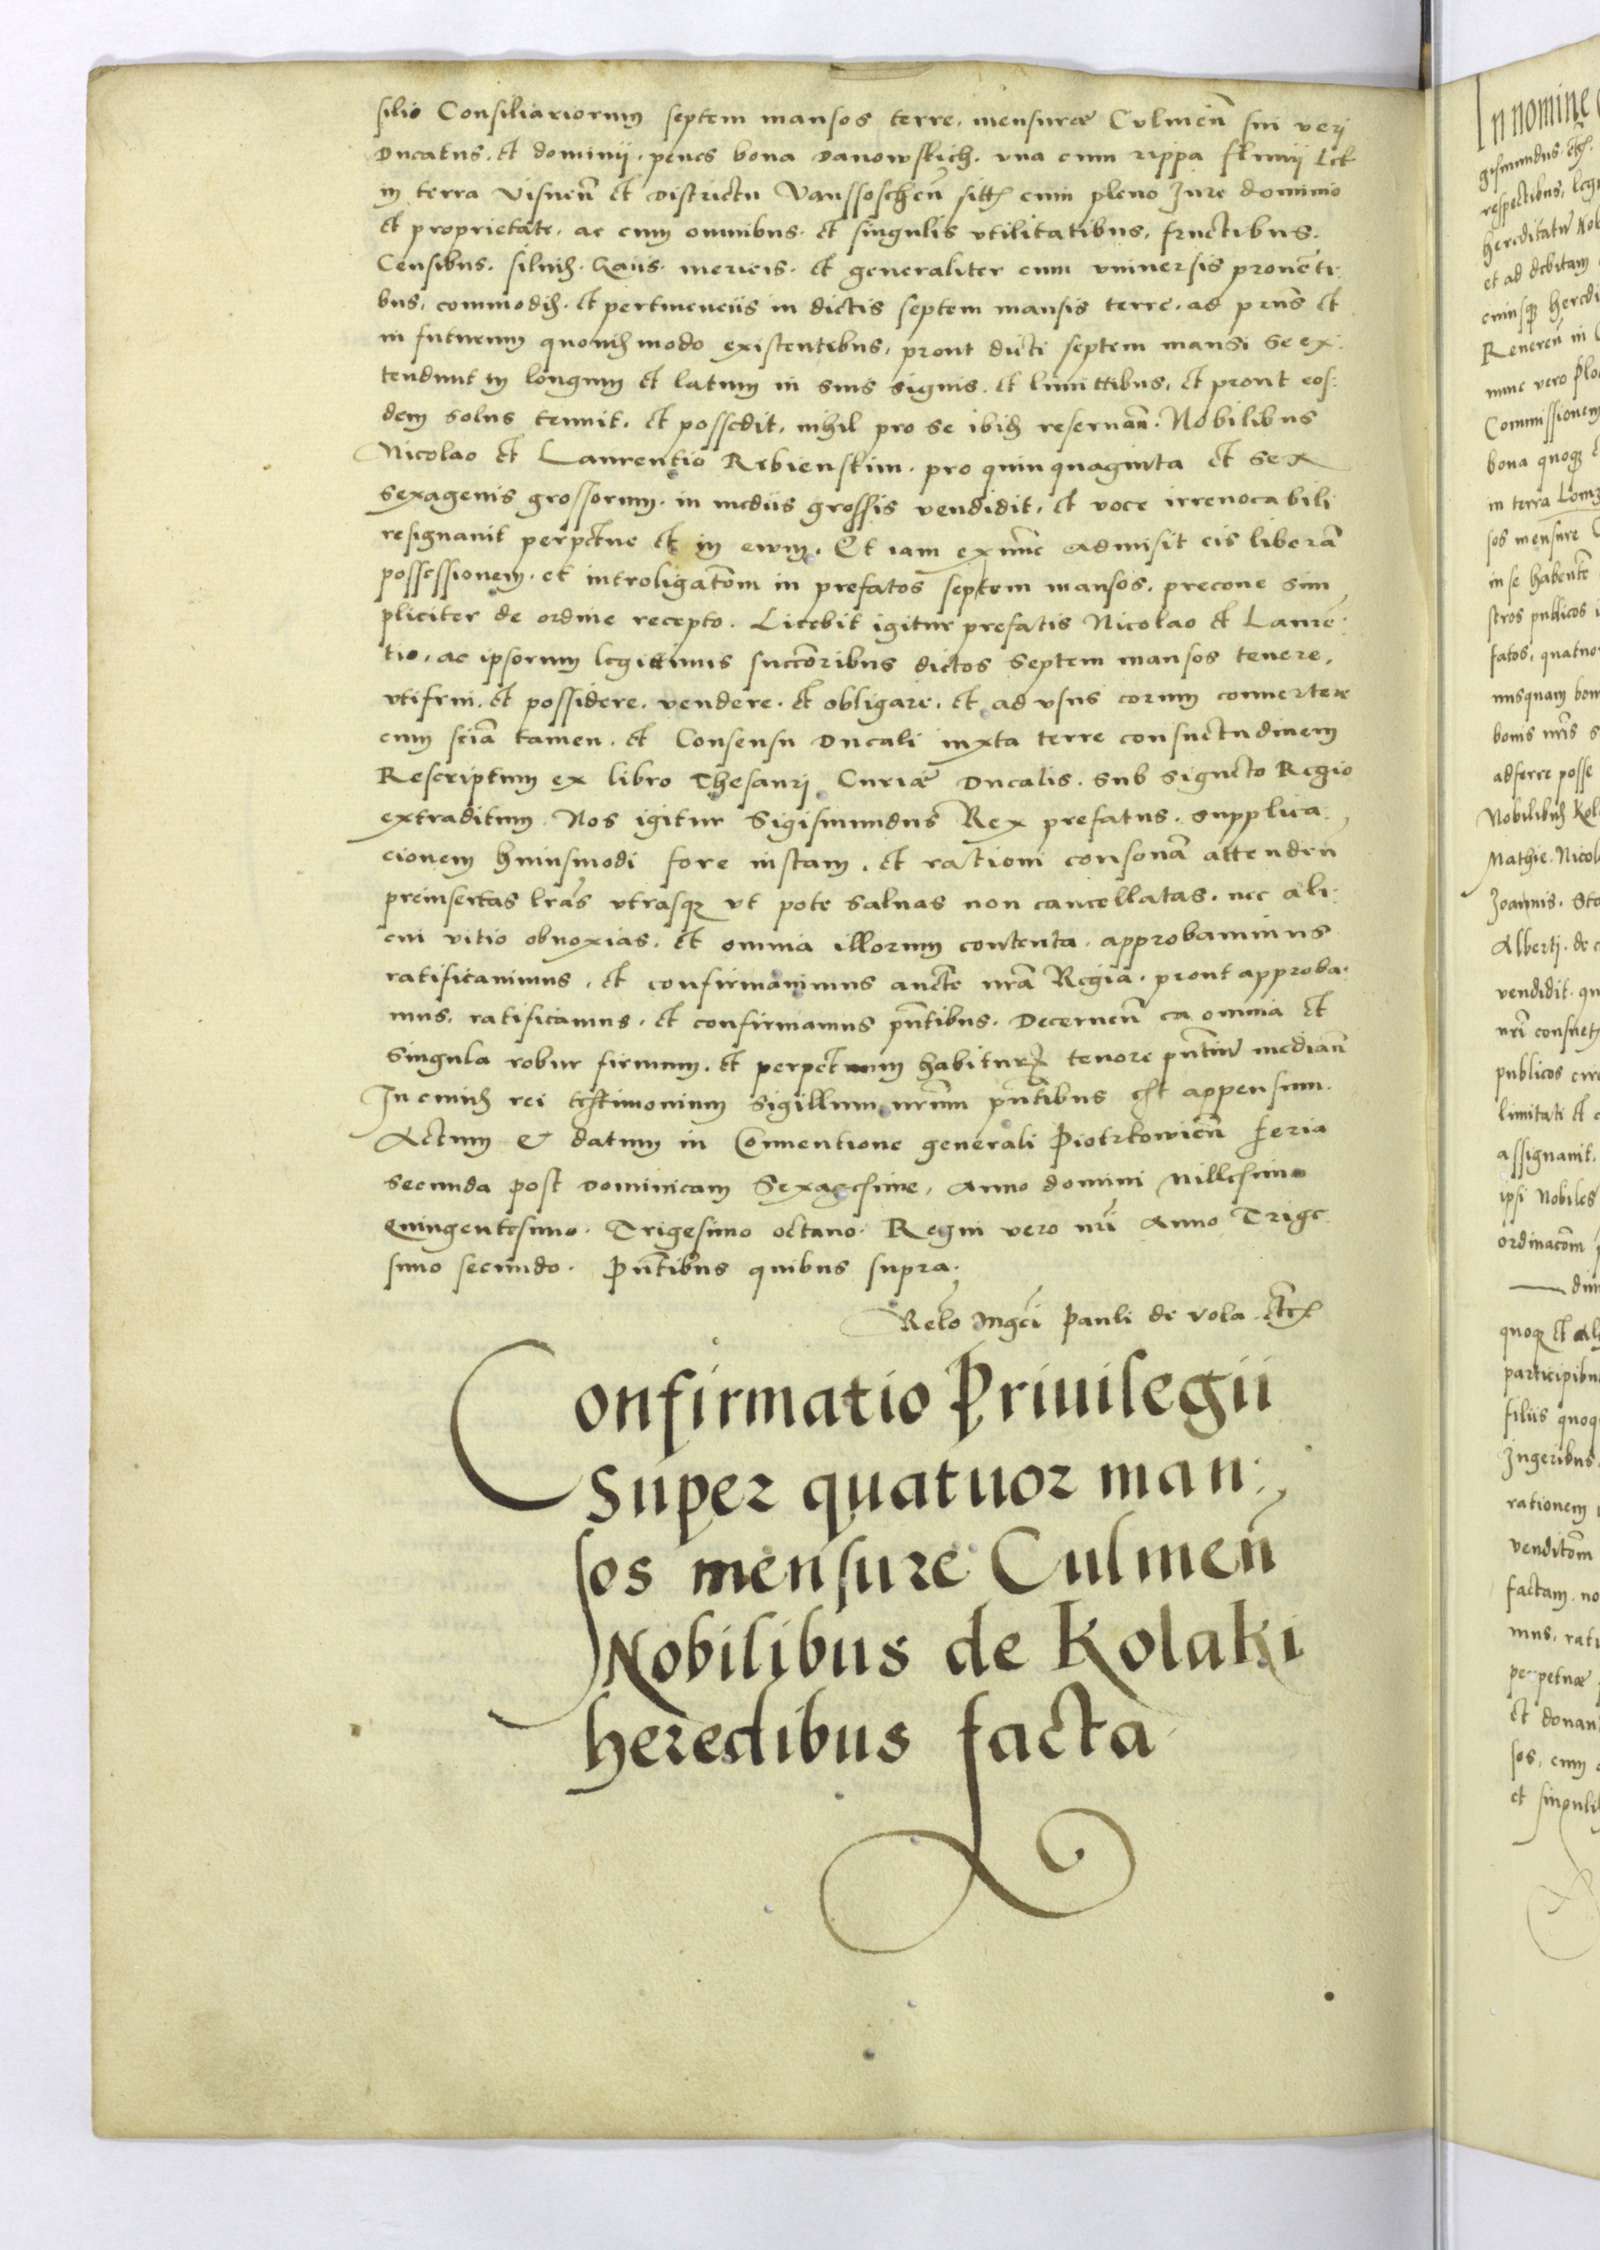 silio Consiliariorum septem mansos terre. mensuræ Culmeñ sui veri
Ducatus. et dominij. penes bona Danowskich. vna cum rippa fluuij Lek
in terra Visneñ et Districtu Vanssoscheñ sitꝭ cum pleno Jure dominio
et proprietate. ac cum omnibus. et singulis vtilitatibus, fructibus.
Censibus. siluiꝭ. Gaiis. mericis. et generaliter cum vniuersis prouenti:
bus, commodiꝭ. et pertinenciis in dictis septem mansis terre. ad pñs et
in futurum quouiꝭmodo existentibus, prout dicti septem mansi se ex:
tendunt in longum et latum in suis signis. et limittibus, et prout eos:
dem solus tenuit. et possedit, nihil pro se ibiꝭ reseruañ. Nobilibus
Nicolao et Laurentio Rebienskim. pro quinquaginta et sex
sexagenis grossorum. in mediis grossis vendidit, et voce irreuocabili
resignauit perpetue et in ewm. Et iam exnũc admisit eis liberã
possessionem. et introligatõm in prefatos septem mansos. precone sim
pliciter de ordine recepto. Licebit igitur prefatis Nicolao et Laurẽ:
tio, ac ipsorum legittimis succõribus dictos septem mansos tenere,
vtifrui. et possidere. vendere. et obligare, et ad vsus eorum conuertere
cum sciã tamen. et Consensu Ducali iuxta terre consuetudinem
Rescriptum ex libro Thesauri Curiæ Ducalis. sub signeto Regio
extraditum. Nos igitur Sigismundus Rex prefatus. supplica:
cionem huiusmodi fore iustam, et rationi consonã attendeñ
preinsertas lrãs vtrasqꝫ vt pote saluas non cancellatas. nec ali:
cui vitio obnoxias. et omnia illorum contenta. approbauimus
ratificauimus, et confirmauimus aucte nrã Regia. prout approba:
mus. ratificamus. et confirmamus pñtibus. Decerneñ ea omnia et
singula robur firmum. et perpetuum habiturꝭ tenore pñtiũ mediañ
In cuiuꝭ rei testimonium sigillum nrũm pñtibus est appensum.
Actum & datum in Conuentione generali Piotrkowieñ feria
secunda post dominicam Sexagesime, Anno domini Millesimo
Quingentesimo. Trigesimo octauo. Regni vero nrĩ Anno Trige
simo secundo. Pñtibus quibus supra.
Relõ Mgcĩ Pauli de Vola. etcꝭ
Confirmatio Priuilegii
Super quatuor man:
sos mensure Culmeñ
Nobilibus de Kolaki
heredibus facta
In nomine
gismundus. etcꝭ.
respectibus, leg
hereditatũ Kol
et ad debitam
cuiusqꝫ heredi
Reuereñ in
nunc vero Plo
Commissionem
bona quoqꝫ
in terra Lomz
sos mensure C
in se habente
stros publicos i
fatos, quatuor
nusquam bon
bonis nrĩs s
adferre posse
Nobilibuꝭ Kol
Mathie. Nicol
Joannis. Sta
Alberti. de c
vendidit. qu
nrĩ consuet
publicos cir
limitati et
assignauit.
ipsi Nobiles
ordinacõm
dim
quoqꝫ et al
participibu
filiis quoq
Jngeribus
rationem
venditõm
factam. no
mus, rati
perpetuæ
et donan
sos, cum
et singuli